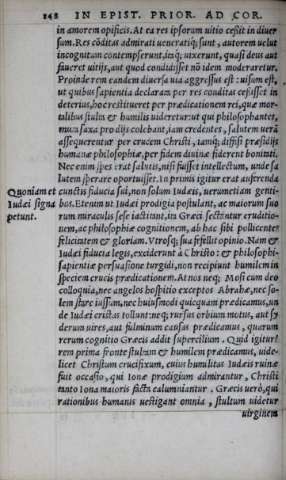 148 IN EPIST. PRIOR. AD COR.
in amorem opificis. At ea res ipsorum uitio cessit in diuer
sum. Res cōditas admirati ueneratiq; sunt, autorem uelut
incognitum contempserunt, ixq; uixerunt, quasi deus aut
fiueret uitijs, aut quod condidisset nō idem moderaretur.
Proinde rem eandem diuersa uia aggressus est: uisum est,
ut quibus sapientia declaram per res conditas cessisset in
deterius, hos restitueret per prædicationem rei, quæ mor-
talibus stulta & humilis uideretur: ut qui philosophantes,
muta saxa pro dijs colebant, iam credentes, salutem uerā
assequerentur per crucem Christi, tamq; diffisi præsidijs
humanæ philosophiæ, per fidem diuinæ fiderent bonitati.
Nec enim spes erat salutis, nisi fuisset intellectum, unde sa
lutem sperare oportuisset. In primis igitur erat asserenda
Quoniam et cunctis fiducia sui, non solum Iudæis, uerumetiam genti-
Iudæi signa bus. Etenim ut Iudæi prodigia postulant, ac maiorum suo
petunt. rum miraculis sese iactitant, ita Græci sectantur eruditio-
nem, ac philosophiæ cognitionem, ab hac sibi pollicentes
felicitatem & gloriam. Vtrosq; sua fefellit opinio. Nam &
Iudæi fiducia legis, exciderunt à Christo: & philosophi
sapientiæ persuasione turgidi, non recipiunt humilem in
speciem crucis prædicationem. At nos neq; Mosi cum deo
colloquia, nec angelos hospitio exceptos Abrahæ, nec so-
lem stare iussum, nec huiusmodi quicquam prædicamus, un
de Iudæi cristas tollunt: neq; rursus orbium motus, aut sy
derum uires, aut fulminum causas prædicamus, quarum
rerum cognitio Græcis addit supercilium. Quid igitur?
rem prima fronte stultam & humilem prædicamus, uide-
licet Christum crucifixum, cuius humilitas Iudæis ruinæ
fuit occasio, qui Ionæ prodigium admirantur, Christi
tanto Iona maioris facta calumniantur. Græcis uerò, qui
rationibus humanis uestigant omnia, stultum uidetur
uirginem